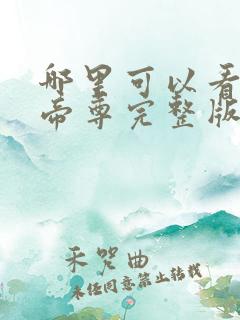 哪里可以看
帝尊完整版
禾咒曲
未经同意禁止转载